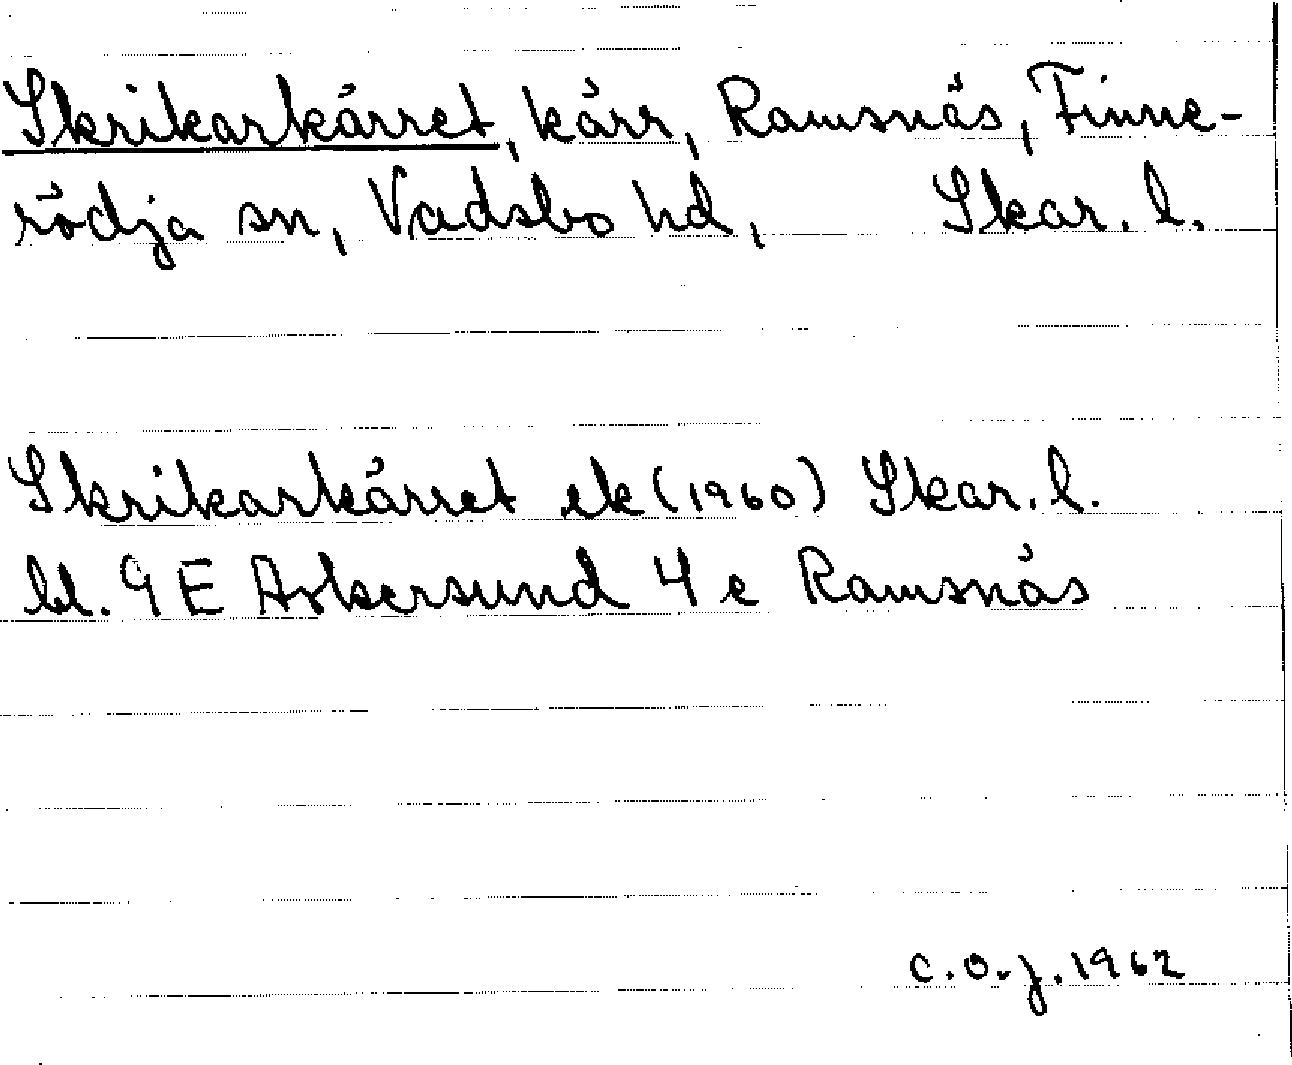 Skrikarkärret, kärr, Ramsnäs, Finne-
rödja sn, Vadsbo hd, Skar. l.
Skrikarkärret ek (1960) Skar. l.
bl. 9 E Askersund 4 e Ramsnäs
C.O.J. 1962